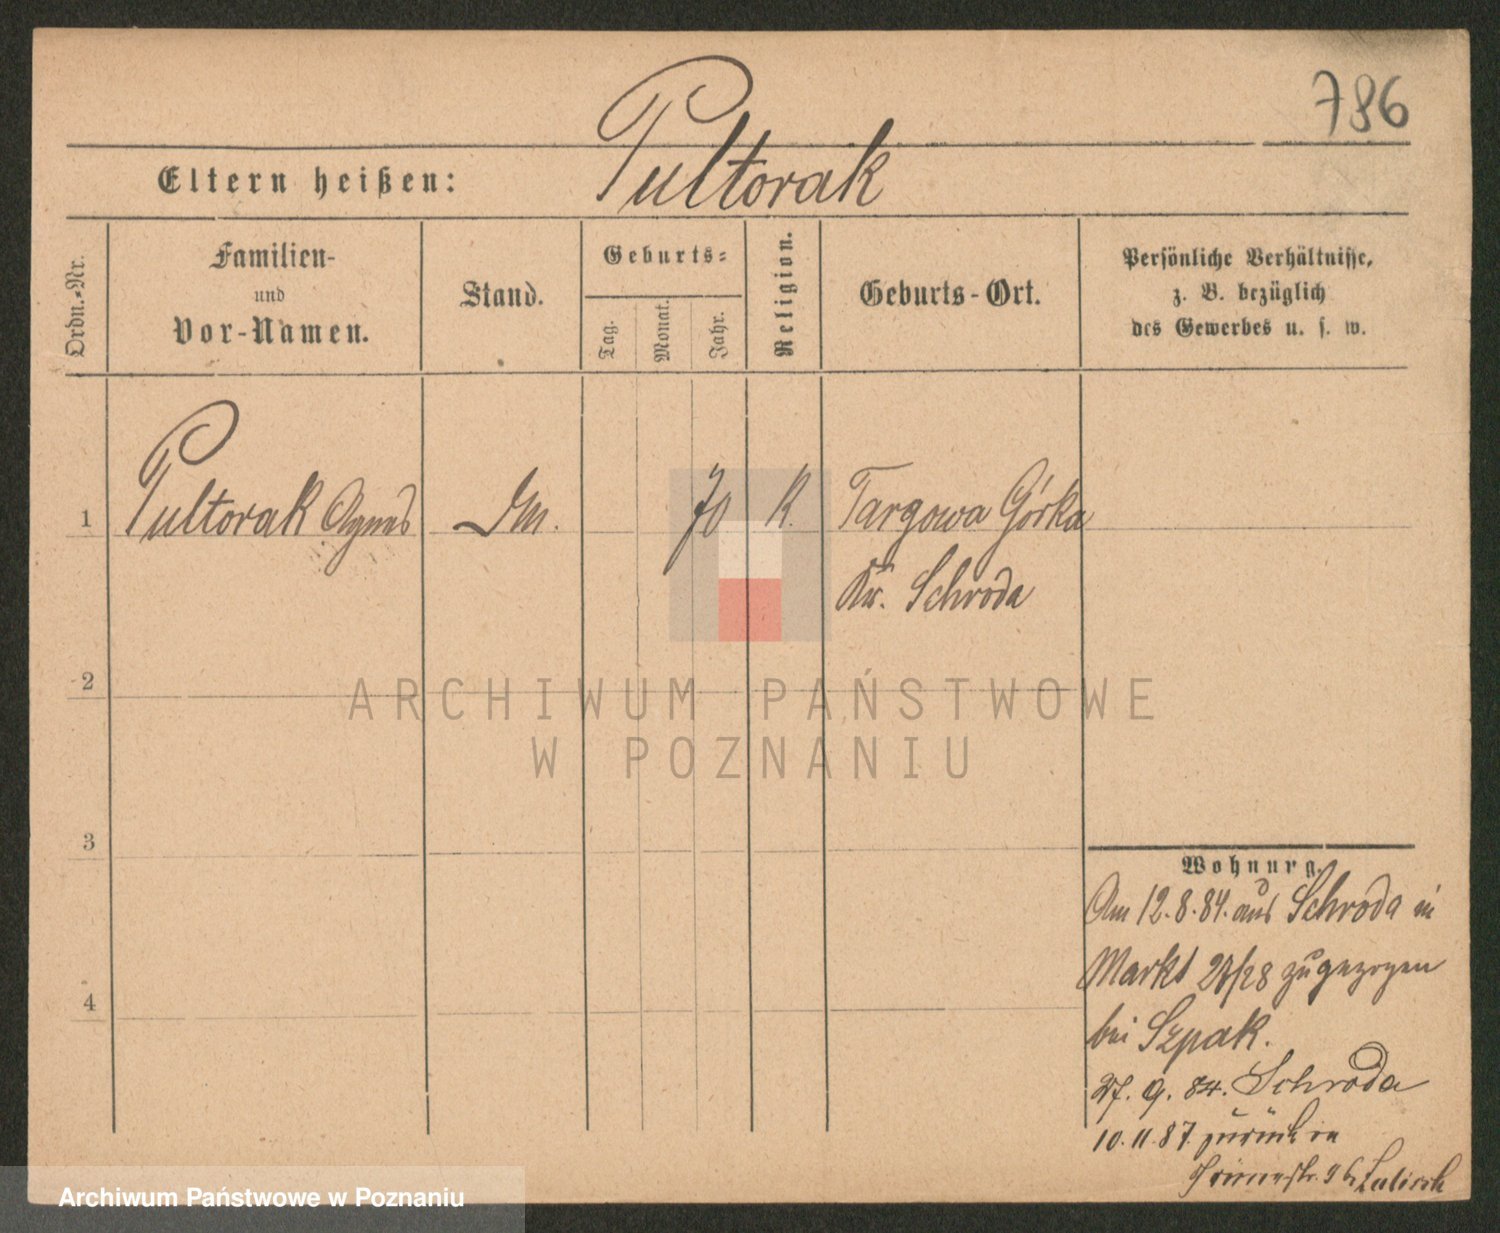 786
Pultorak
Eltern heißen:
Ordn.-Nr.
Familien-
und
Vor-Namen.
Stand.
Geburts-
Tag.
Monat.
Jahr.
Religion.
Geburts-Ort.
Persönliche Verhältnisse,
z. B. bezüglich
des Gewerbes u. s. w.
1
Pultorak Agnes
70
K.
Targowa Górka
Kr. Schroda
2
3
4
Wohnung.
Am 12.8.84. aus Schroda in
Markt 27/28 zugezogen
bei Szpak.
27. 9. 84. Schroda
10.11.87. zurück in
ARCHIWUM PAŃSTWOWE
W POZNANIU
Archiwum Państwowe w Poznaniu